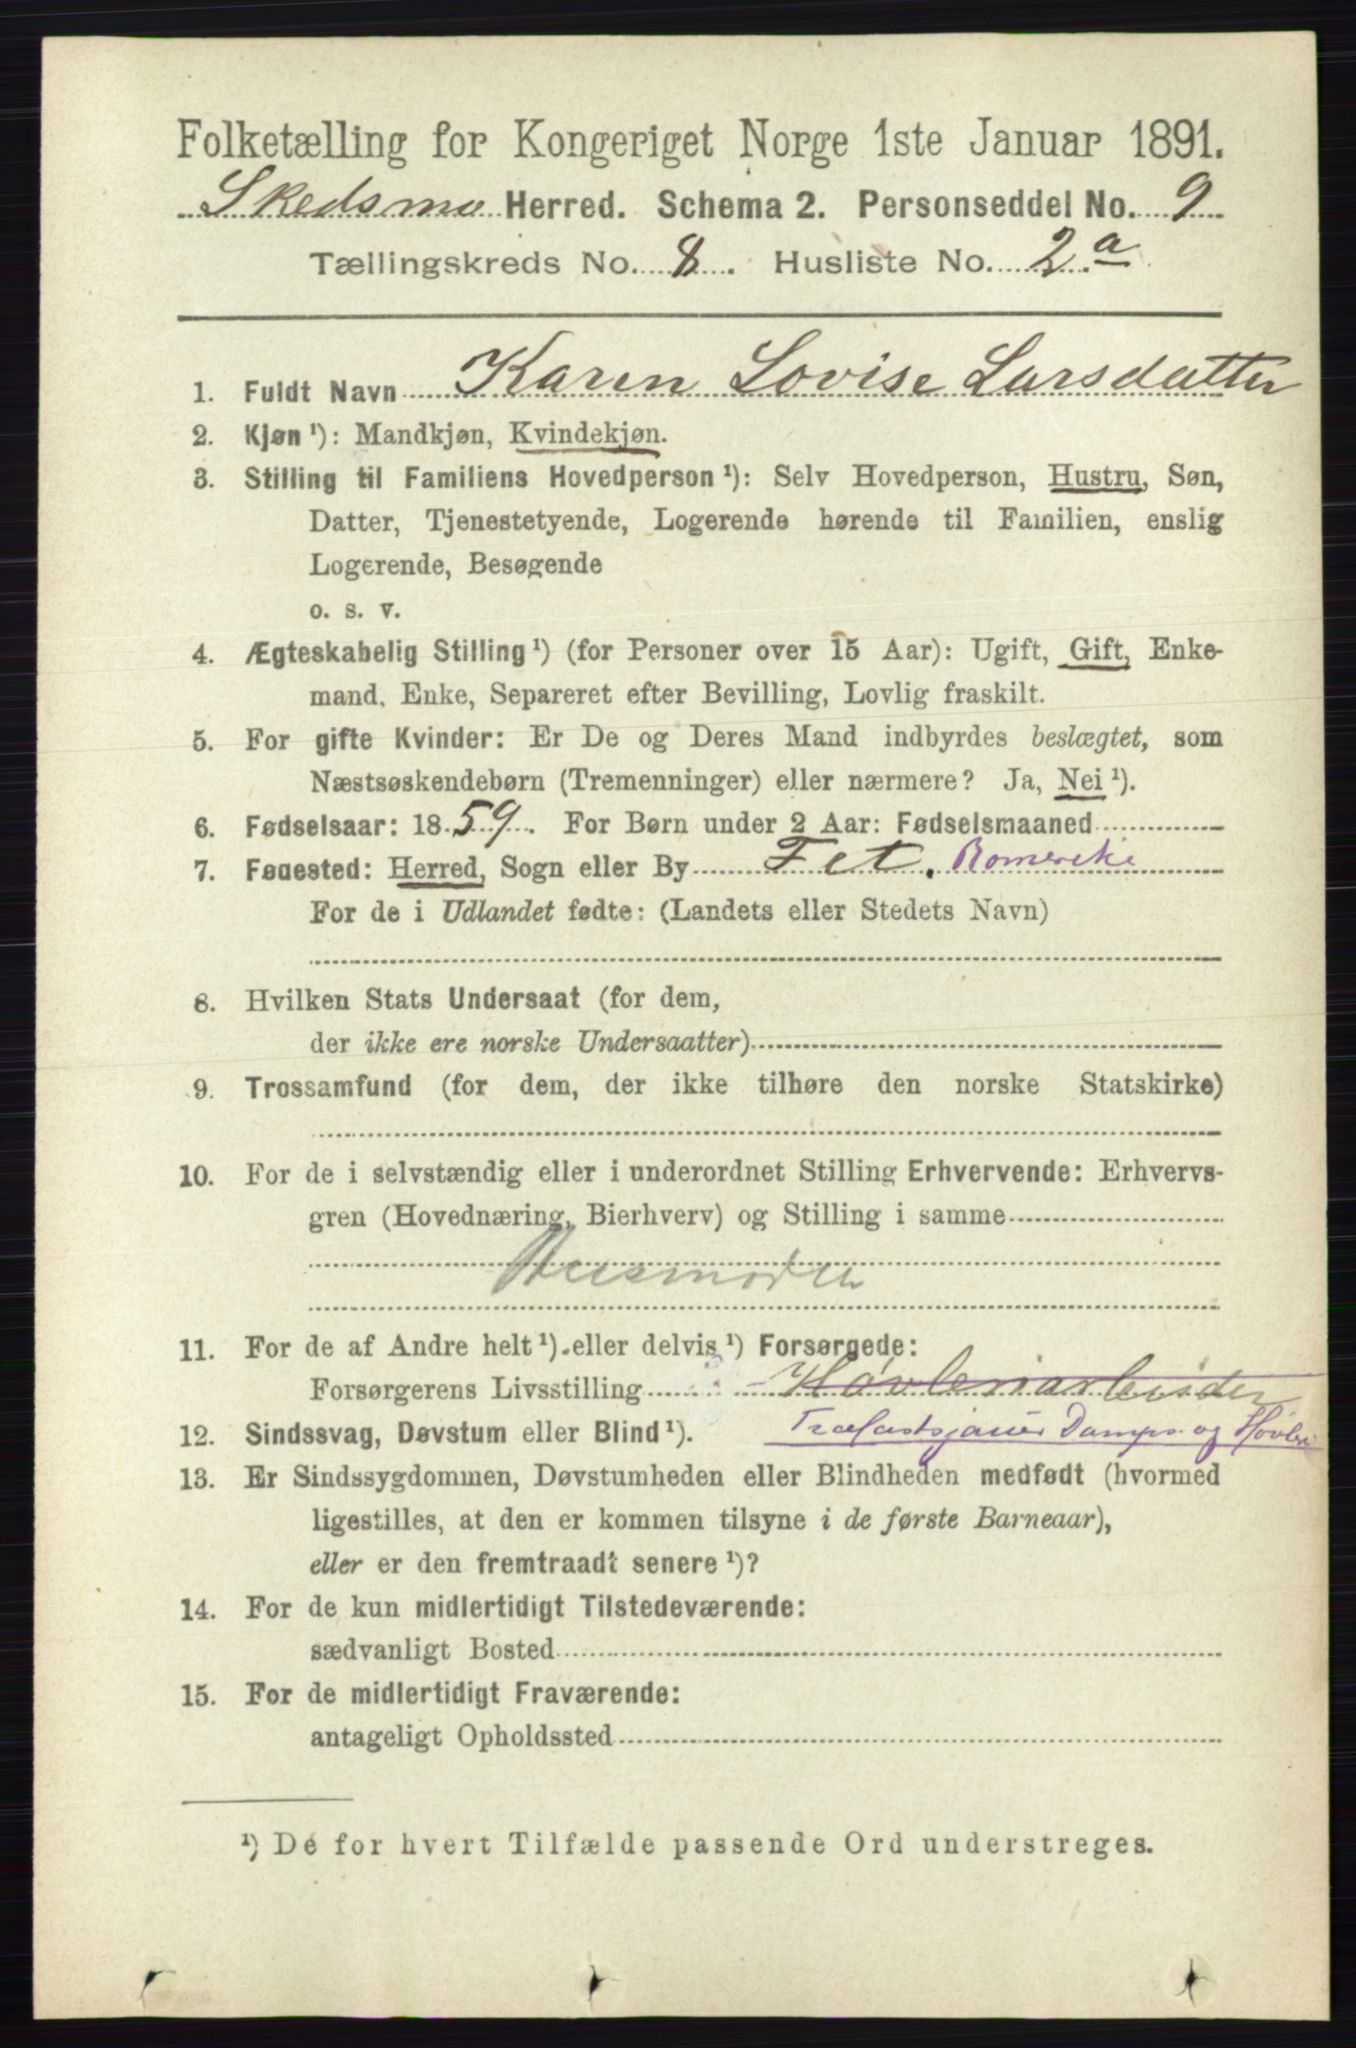 Folketælling for Kongeriget Norge 1ste Januar 1891.
Skedsmo Herred. Schema 2. Personseddel No. 9
Tællingskreds No. 8. Husliste No. 2 a
1. Fuldt Navn Karen Lovise Larsdatter
2. Kjøn ¹): Mandkjøn, Kvindekjøn.
3. Stilling til Familiens Hovedperson ¹): Selv Hovedperson, Hustru, Søn,
Datter, Tjenestetyende, Logerende hørende til Familien, enslig
Logerende, Besøgende
o. s. v.
4. Ægteskabelig Stilling ¹) (for Personer over 15 Aar): Ugift, Gift, Enke-
mand, Enke, Separeret efter Bevilling, Lovlig fraskilt.
5. For gifte Kvinder: Er De og Deres Mand indbyrdes beslægtet, som
Næstsøskendebørn (Tremenninger) eller nærmere? Ja, Nei ¹).
6. Fødselsaar: 1859. For Børn under 2 Aar: Fødselsmaaned
7. Fødested: Herred, Sogn eller By Fet. Romerike
For de i Udlandet fødte: (Landets eller Stedets Navn)
8. Hvilken Stats Undersaat (for dem,
der ikke ere norske Undersaatter)
9. Trossamfund (for dem, der ikke tilhøre den norske Statskirke)
10. For de i selvstændig eller i underordnet Stilling Erhvervende: Erhvervs-
gren (Hovednæring, Bierhverv) og Stilling i samme
Husmoder
11. For de af Andre helt ¹) eller delvis ¹) Forsørgede:
Forsørgerens Livsstilling Høvleriarbeider
12. Sindssvag, Døvstum eller Blind ¹). Damps. og Høvleri
13. Er Sindssygdommen, Døvstumheden eller Blindheden medfødt (hvormed
ligestilles, at den er kommen tilsyne i de første Barneaar),
eller er den fremtraadt senere ¹)?
14. For de kun midlertidigt Tilstedeværende:
sædvanligt Bosted
15. For de midlertidigt Fraværende:
antageligt Opholdssted
¹) De for hvert Tilfælde passende Ord understreges.